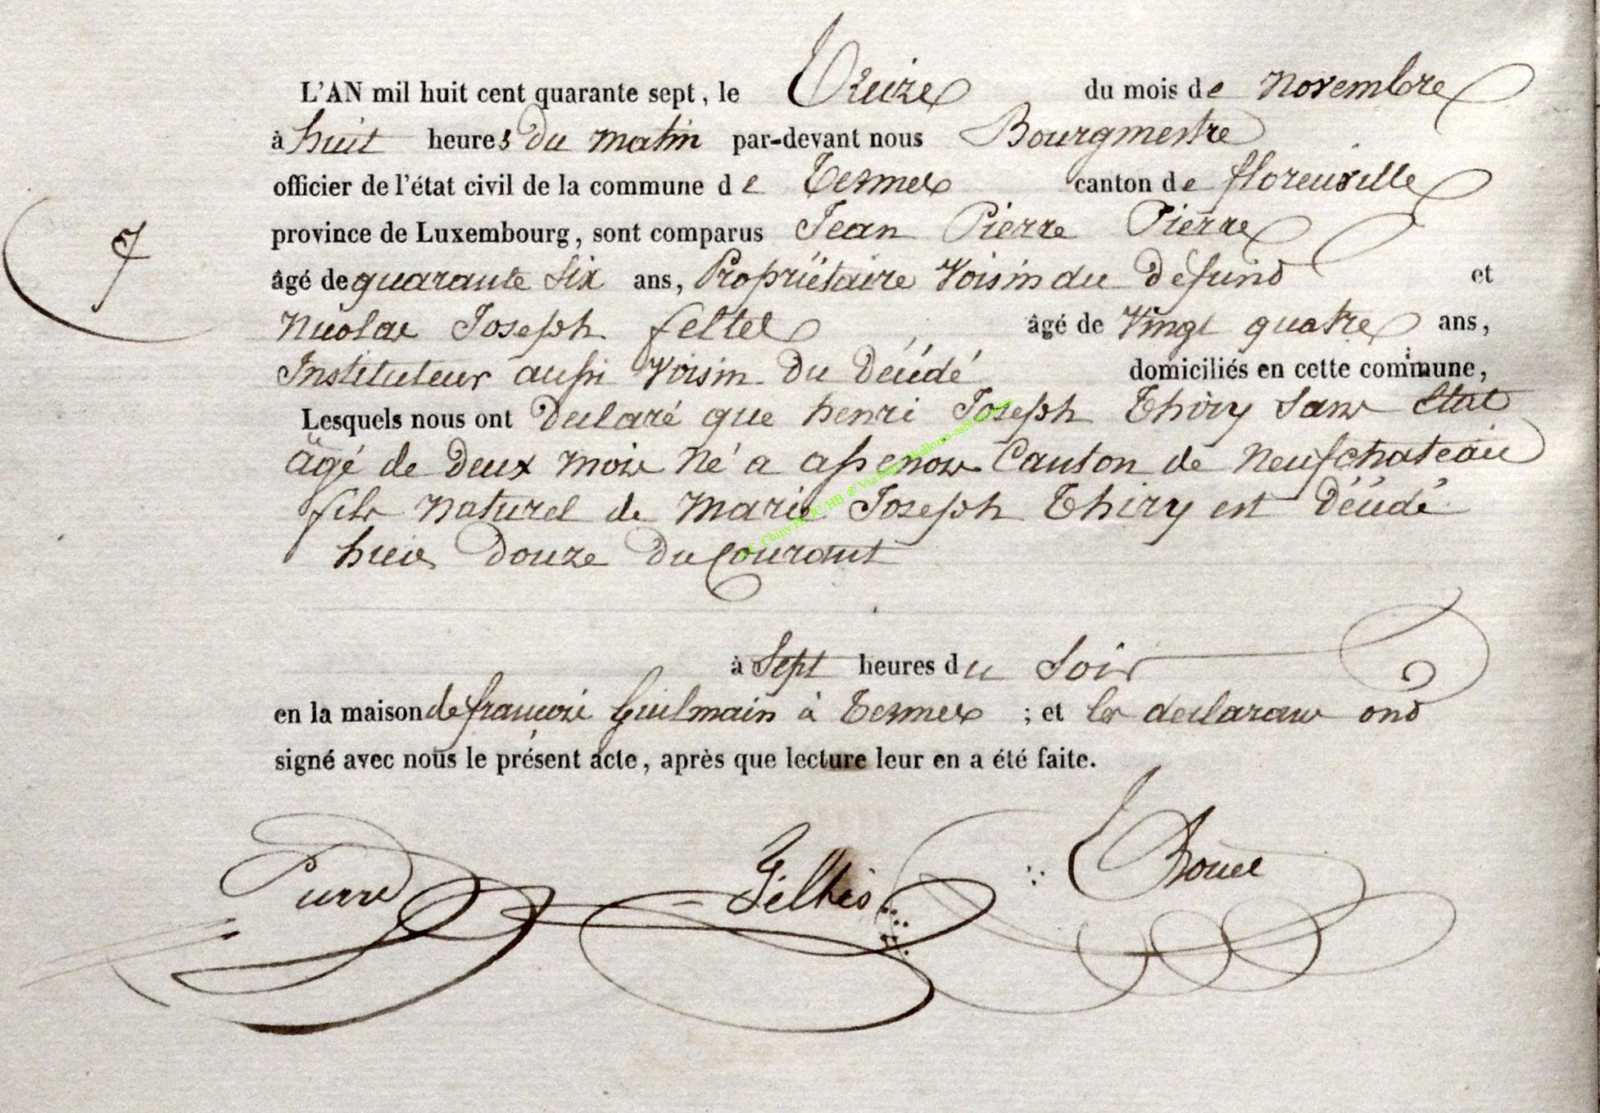 L'AN mil huit cent quarante sept, le Treize du mois de novembre
à huit heures du matin par-devant nous Bourgmestre
officier de l'état civil de la commune de Termes canton de florenville
7
province de Luxembourg, sont comparus Jean Pierre Pierre
âgé de quarante six ans, Propriétaire Voisin du défund et
Nicolas Joseph feltes âgé de Vingt quatre ans,
Instituteur aussi Voisin du Décédé domiciliés en cette commune,
Lesquels nous ont Declaré que henri Joseph Thiry Sans Etat
âgé de Deux mois Né a assenois Canton de Neufchateau
fils naturel de Marie Joseph Thiry est Décédé
hier Douze Du Courant
à Sept heures du Soir
en la maison de françois Guilmain à Termes ; et les declarans ond
signé avec nous le présent acte, après que lecture leur en a été faite.
Pierre